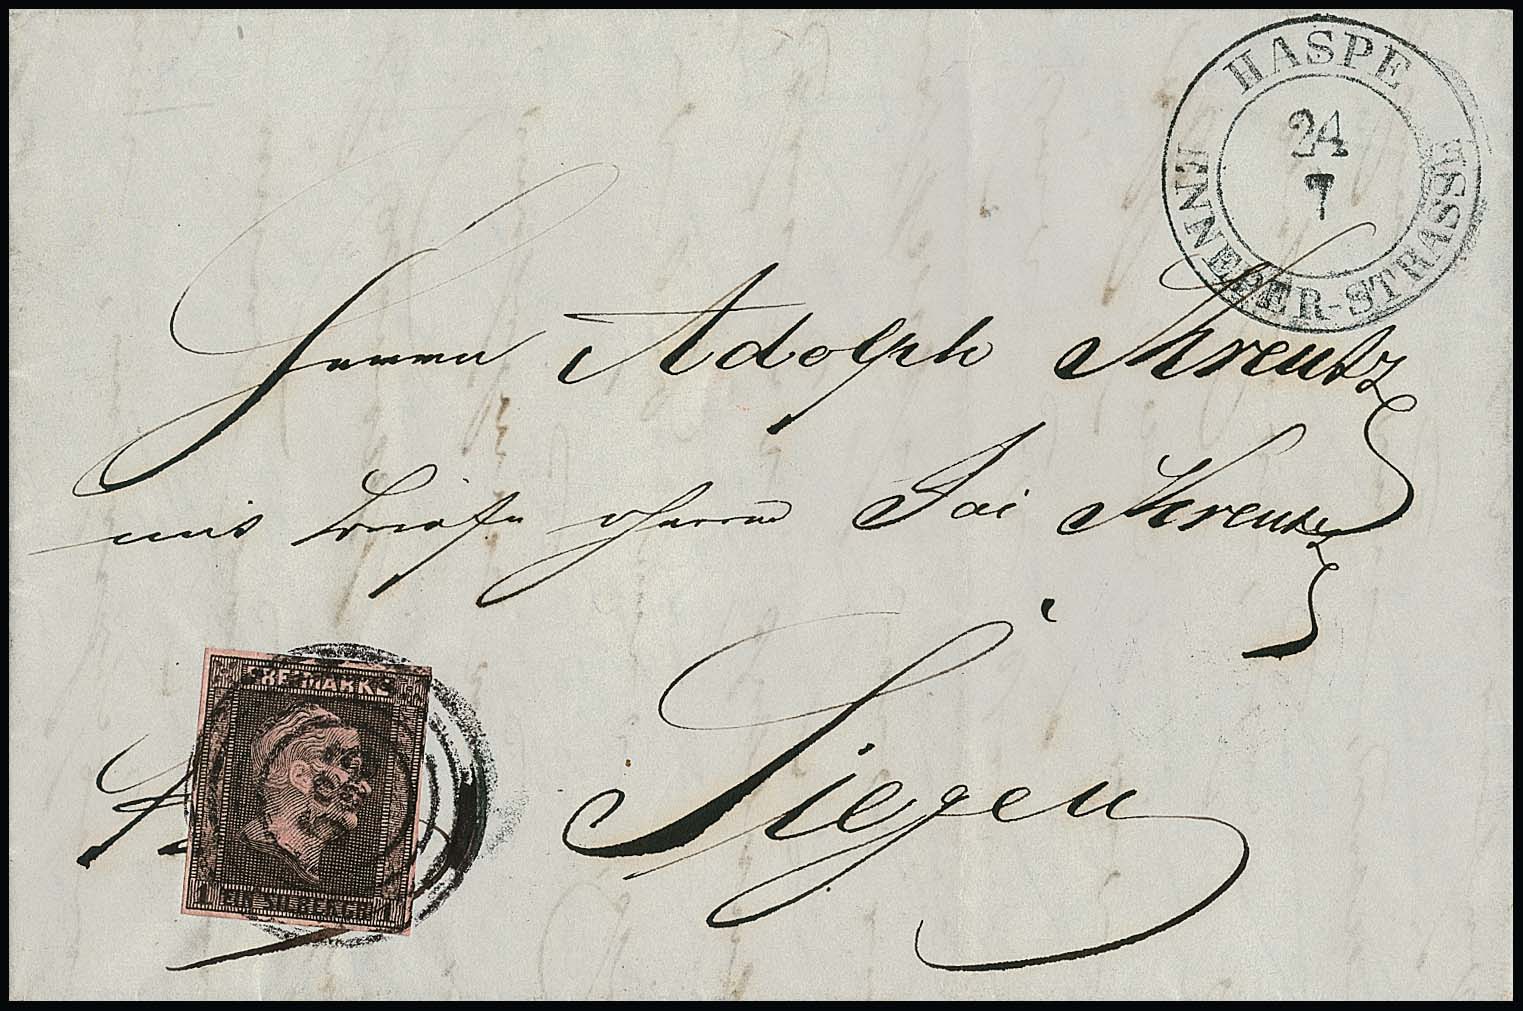 HASPE
24
7
ENNEPER-STRASSE
Herrn Adolph Kreutz
Herrn Kreutz
Siegen
FREIMARKE
1 EIN SILBERGR. 1